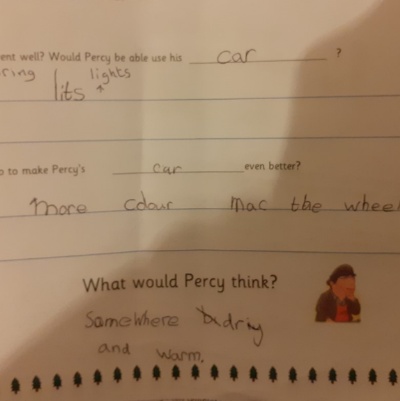 ent well? Would Percy be able use his car ?
ring lights
lits
o to make Percy's car even better?
more colour mac the wheel
What would Percy think?
Somewhere driy
and warm.